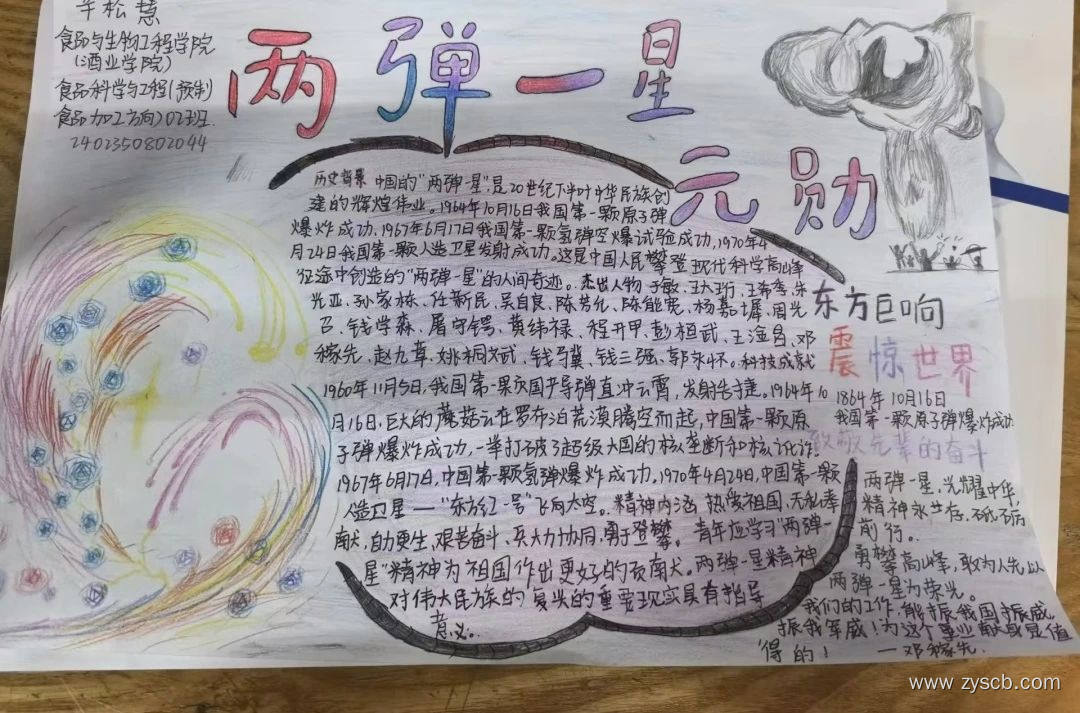 松慧
食品与生物工程学院
(酒业学院)
食品科学与工程(预制
食品加工方向)02班
2402350802044
两弹一星
元勋
历史背景 中国的"两弹一星",是20世纪下半叶中华民族创
建的辉煌伟业。1964年10月16日我国第一颗原子弹
爆炸成功,1967年6月17日我国第一颗氢弹空爆试验成功,1970年4
月24日我国第一颗人造卫星发射成功。这是中国人民攀登现代科学高峰
征途中创造的"两弹一星"的人间奇迹。杰出人物 于敏、王大珩、王希季、朱
光亚、孙家栋、任新民、吴自良、陈芳允、陈能宽、杨嘉墀、周光
召、钱学森、屠守锷、黄纬禄、程开甲、彭桓武、王淦昌、邓
稼先、赵九章、姚桐斌、钱骥、钱三强、郭永怀。科技成就
1960年11月5日,我国第一颗国产导弹直冲云霄,发射告捷。1964年10
月16日,巨大的蘑菇云在罗布泊荒漠腾空而起,中国第一颗原
子弹爆炸成功,一举打破了超级大国的核垄断和核讹诈。
1967年6月17日,中国第一颗氢弹爆炸成功,1970年4月24日,中国第一颗
人造卫星——"东方红一号"飞向太空。精神内涵 热爱祖国、无私奉
献、自力更生、艰苦奋斗、大力协同、勇于登攀。青年应学习"两弹一
星"精神为祖国作出更好的贡献。两弹一星精神
对伟大民族的复兴的重要现实具有指导
意义。
东方巨响
震惊世界
1864年10月16日
我国第一颗原子弹爆炸成功
致敬先辈的奋斗
两弹一星,光耀中华,
精神永生存,砥砺
前行。
勇攀高峰,敢为人先,以
两弹一星为荣光。
我们的工作,能振我国振威,
振我军威!为这个事业献身是值
得的! —邓稼先
www.zyscb.com